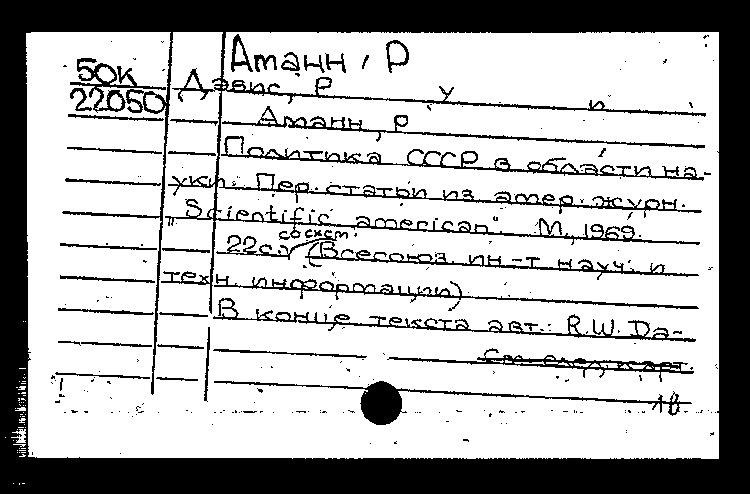 Аманн, Р
50к
22050
Дэвис, Р у и
Аманн, Р
Политика СССР в области на-
уки. Пер. статьи из амер. журн.
"Scientific american". М., 1969.
со схем.
22с. (Всесоюз. ин-т науч. и
техн. информации)
В конце текста авт.: R.W. Da-
См. след. карт.
1в